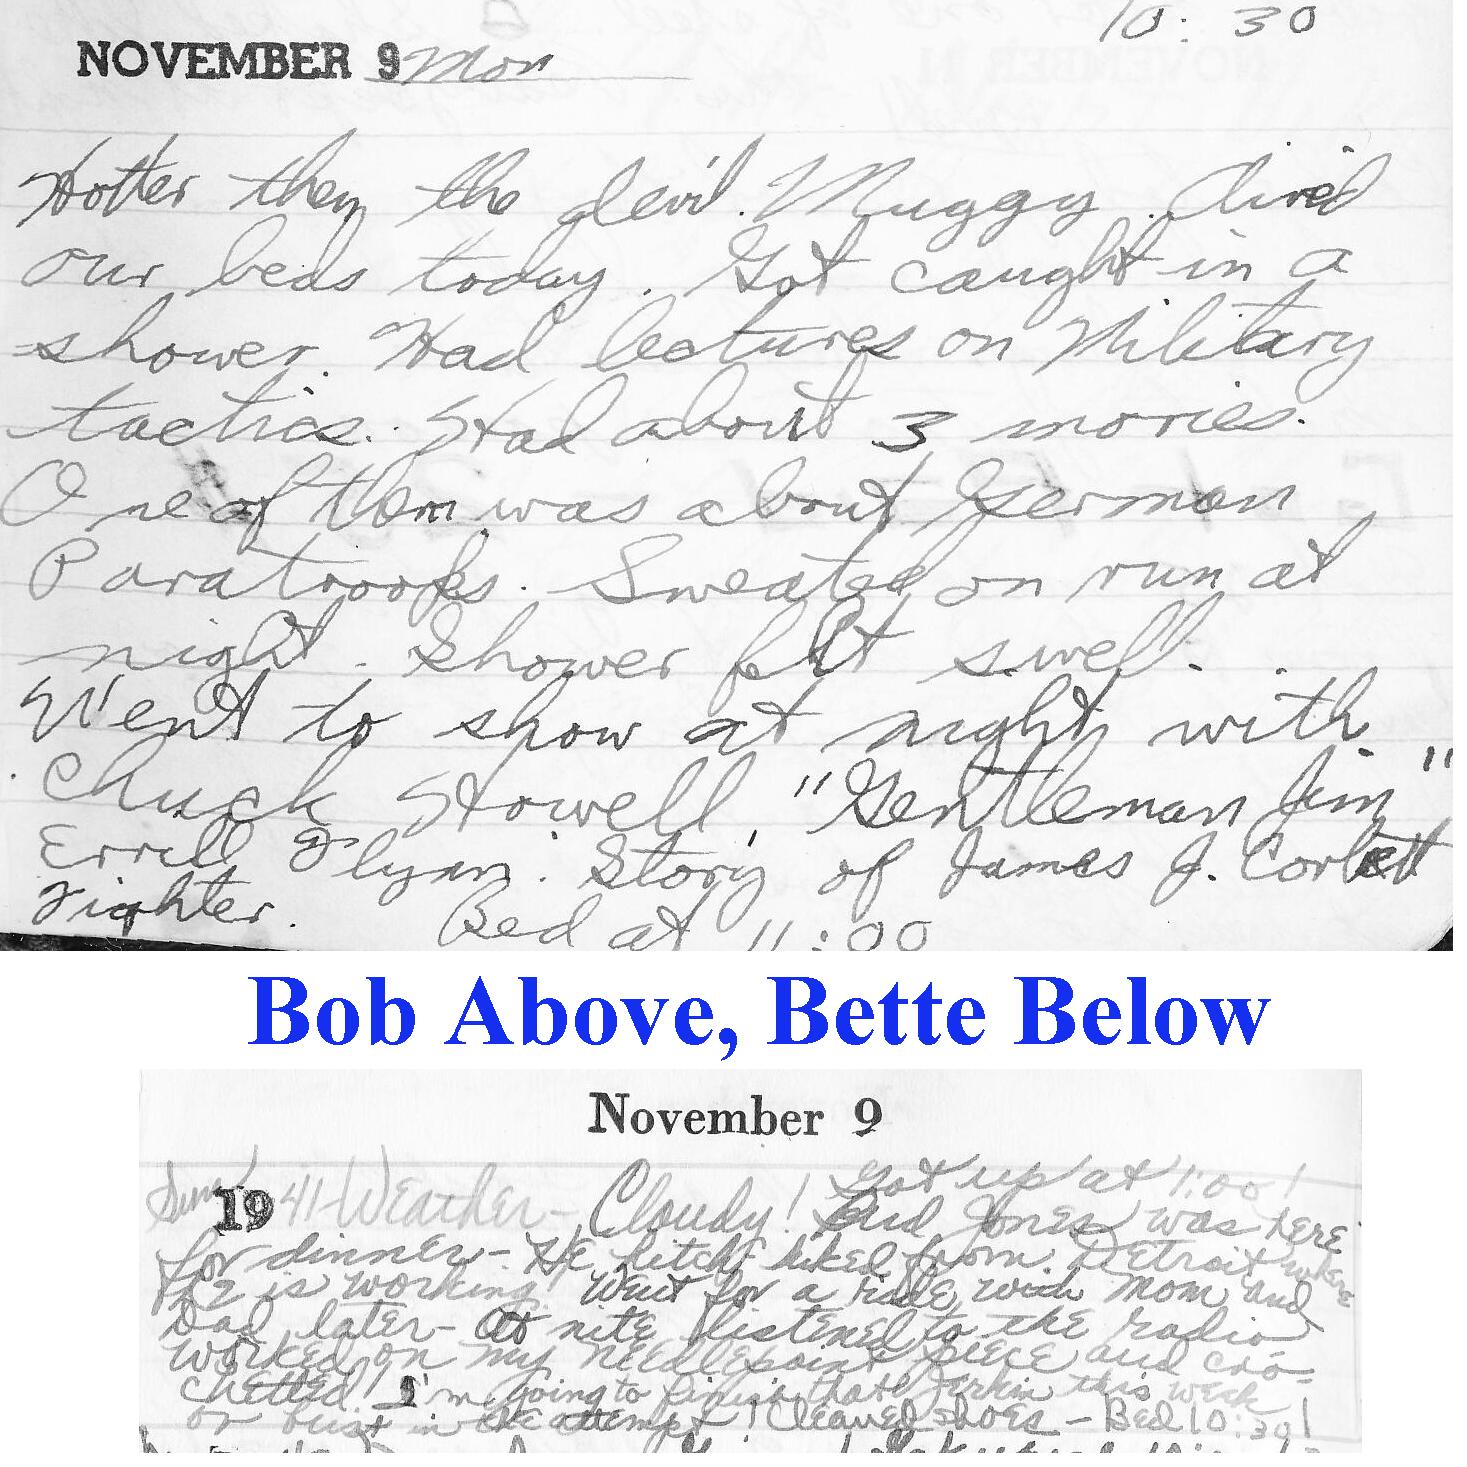 10:30
NOVEMBER 9 Mon
Hotter then the devil. Muggy. Aired
our beds today. Got caught in a
shower. Had lectures on Military
tactics. Had about 3 movies.
One of them was about German
Paratroops. Sweated on run at
night. Shower felt swell.
Went to show at night with
Chuck Stowell, "Gentleman Jim"
Erroll Flynn. Story of James J. Corbett
Fighter. Bed at 11:00
Bob Above, Bette Below
November 9
Got up at 1:00!
Sun 1941 Weather - Cloudy! Bud Jones was here
for dinner - He hitch hiked from Detroit where
he is working! Went for a ride with Mom and
Dad later - At nite listened to the radio
worked on my needlepoint piece and cro-
chetted! I'm going to finish that Jerkin this week
or bust in the attempt! Cleaned shoes - Bed 10:30!